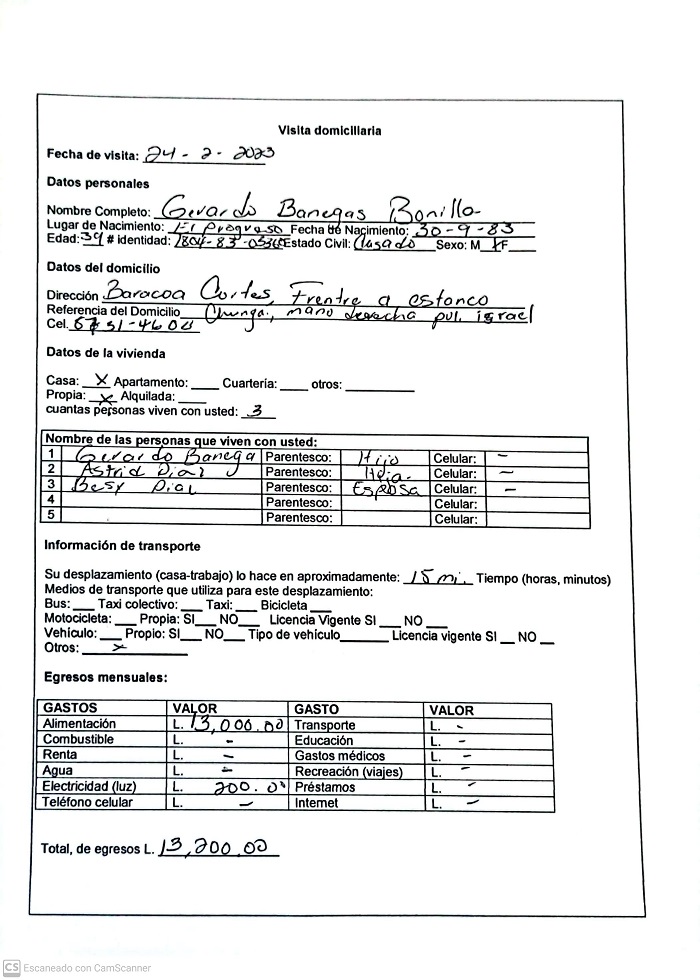 Visita domiciliaria
Fecha de visita: 24 - 2 - 2023
Datos personales
Nombre Completo: Gerardo Banegas Bonilla
Lugar de Nacimiento: El Progreso Fecha de Nacimiento: 30-9-83
Edad: 39 # identidad: 1804-83- Estado Civil: Casado Sexo: M X F
Datos del domicilio
Dirección Baracoa Cortes, Frentre a estanco
Referencia del Domicilio Chunga, mano derecha pul. israel
Cel. 51-4604
Datos de la vivienda
Casa: X Apartamento: ____ Cuartería: ____ otros: __________
Propia: X Alquilada: ____
cuantas personas viven con usted: 3
Nombre de las personas que viven con usted:
1 Gerardo Banega Parentesco: Hijo Celular: –
2 Astrid Diaz Parentesco: Hija. Celular: –
3 Besy Diaz Parentesco: Esposa Celular: –
4 Parentesco: Celular:
5 Parentesco: Celular:
Información de transporte
Su desplazamiento (casa-trabajo) lo hace en aproximadamente: 15 mi. Tiempo (horas, minutos)
Medios de transporte que utiliza para este desplazamiento:
Bus: ___ Taxi colectivo: ___ Taxi: ___ Bicicleta ___
Motocicleta: ___ Propia: SI___ NO___ Licencia Vigente SI ___ NO ___
Vehículo: ___ Propio: SI___ NO___ Tipo de vehículo_______ Licencia vigente SI __ NO __
Otros: X
Egresos mensuales:
GASTOS VALOR GASTO VALOR
Alimentación L. 13,000.00 Transporte L. -
Combustible L. - Educación L. -
Renta L. - Gastos médicos L. -
Agua L. - Recreación (viajes) L. -
Electricidad (luz) L. 200.00 Préstamos L. -
Teléfono celular L. - Internet L. -
Total, de egresos L. 13,200.00
CS Escaneado con CamScanner